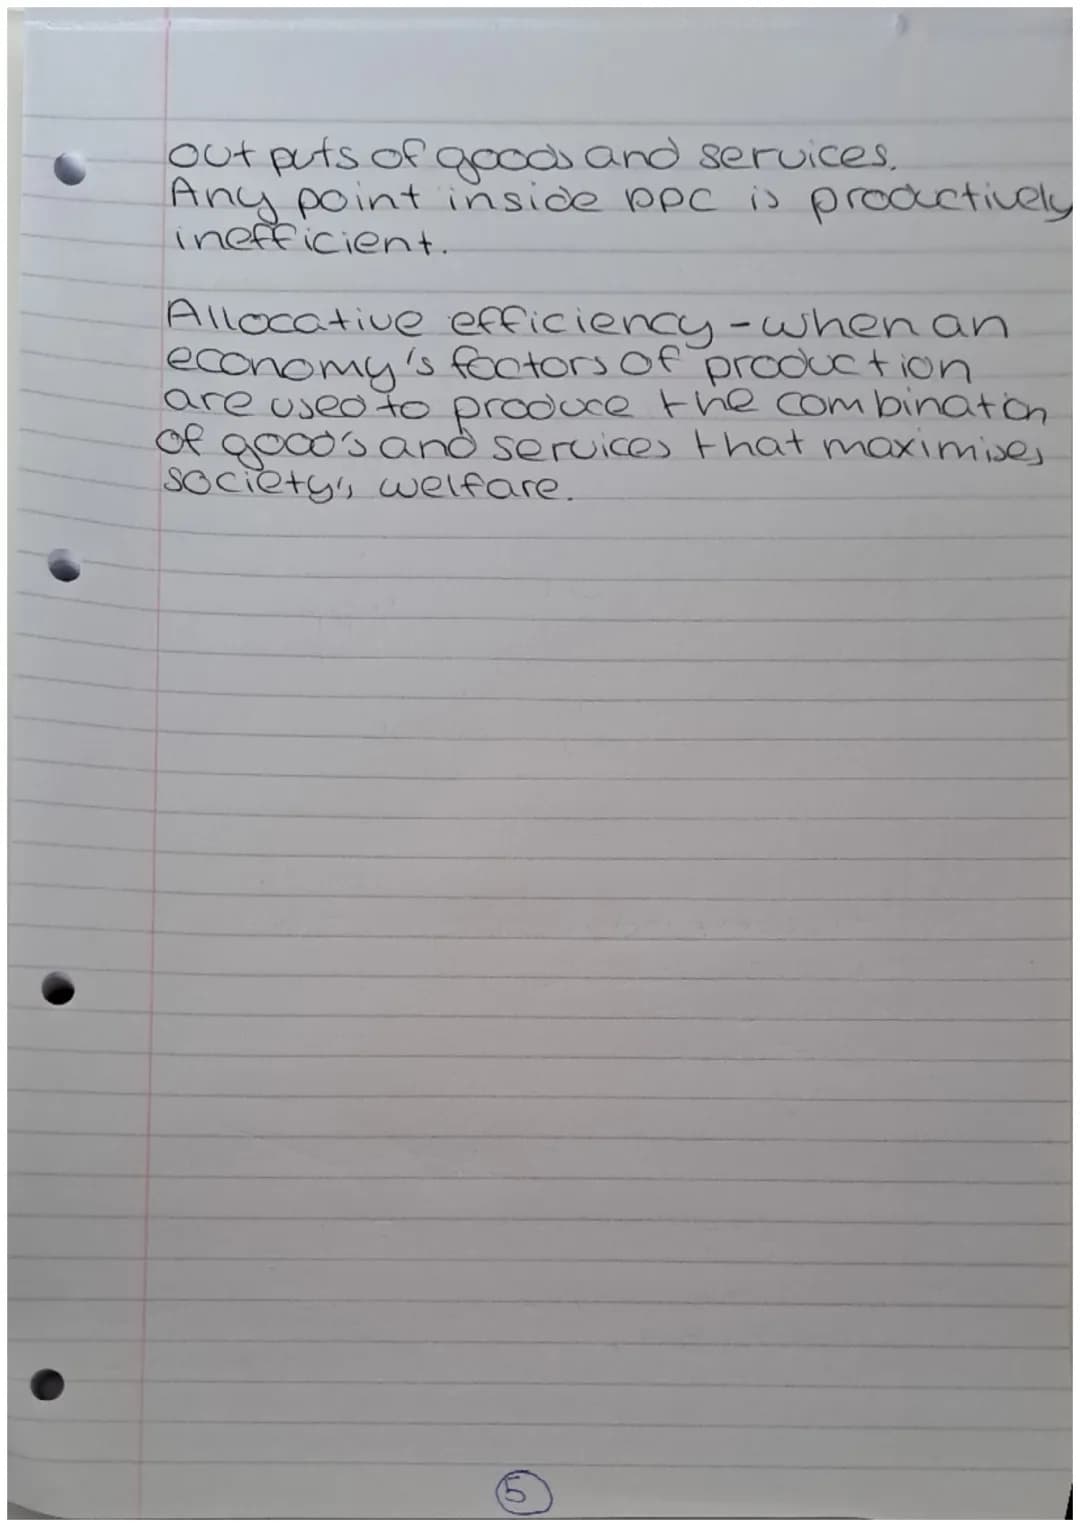 out puts of goods and services.
Any point inside ppc is productively
inefficient.
Allocative efficiency - when an
economy's factors of production
are used to produce the combination
of good's and services that maximises
society's welfare.
5